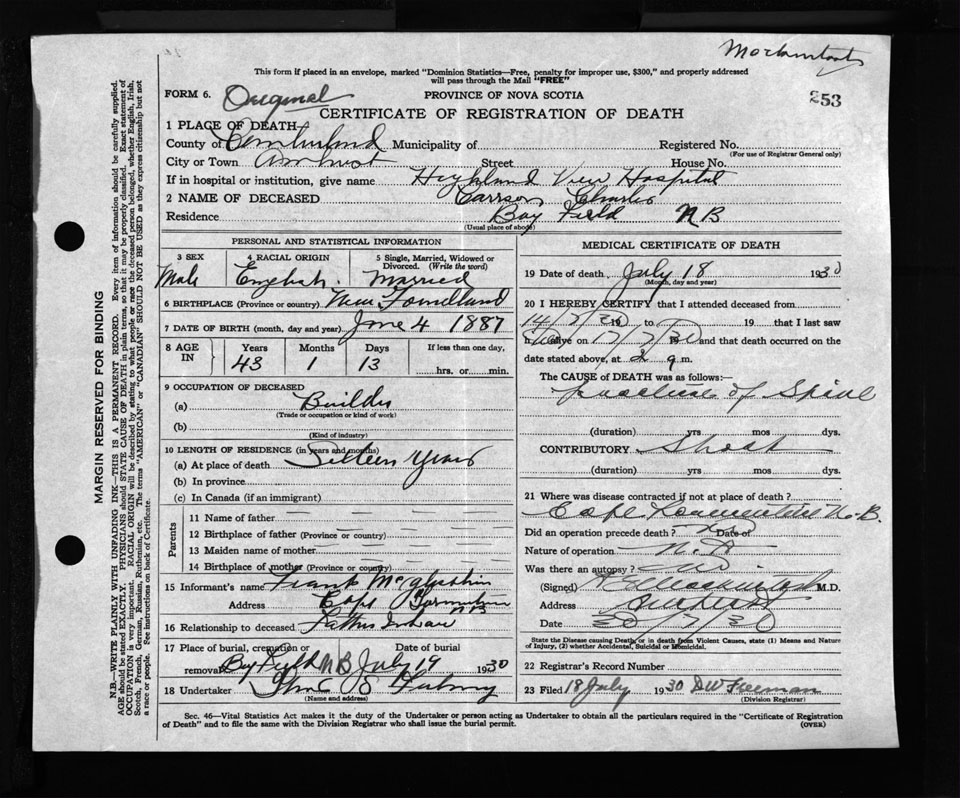 This form if placed in an envelope, marked "Dominion Statistics—Free, penalty for improper use, $300," and properly addressed
will pass through the Mail "FREE"
FORM 6. Original PROVINCE OF NOVA SCOTIA 253
CERTIFICATE OF REGISTRATION OF DEATH
1 PLACE OF DEATH
County of Cumberland Municipality of Registered No.
(For use of Registrar General only)
City or Town Amherst Street House No.
If in hospital or institution, give name Highland View Hospital
2 NAME OF DECEASED Carrson Charles
Residence Bay Field N B
(Usual place of abode)
PERSONAL AND STATISTICAL INFORMATION
3 SEX 4 RACIAL ORIGIN 5 Single, Married, Widowed or Divorced. (Write the word)
Male English Married
6 BIRTHPLACE (Province or country) New Foundland
7 DATE OF BIRTH (month, day and year) June 4 1887
8 AGE IN Years Months Days If less than one day,
43 1 13 hrs. or min.
9 OCCUPATION OF DECEASED
(a) Builder
(Trade or occupation or kind of work)
(b)
(Kind of industry)
10 LENGTH OF RESIDENCE (in years and months)
(a) At place of death years
(b) In province
(c) In Canada (if an immigrant)
Parents
11 Name of father
12 Birthplace of father (Province or country)
13 Maiden name of mother
14 Birthplace of mother (Province or country)
15 Informant's name Frank
Address Cape Tormentine NB
16 Relationship to deceased Father Inlaw
17 Place of burial, cremation or removal Date of burial
By Field N B July 19 1930
18 Undertaker
(Name and address)
MEDICAL CERTIFICATE OF DEATH
19 Date of death July 18 1930
(Month, day and year)
20 I HEREBY CERTIFY that I attended deceased from
14/7/30 19 to 19 that I last saw
h alive on 17/7/30 and that death occurred on the
date stated above, at 2 m.
The CAUSE of DEATH was as follows:—
fracture of Spine
(duration) yrs mos dys.
CONTRIBUTORY Shock
(duration) yrs mos dys.
21 Where was disease contracted if not at place of death?
Cape Tormentine N-B.
Did an operation precede death? No Date of
Nature of operation
Was there an autopsy? No
(Signed) M.D.
Address Amherst
Date 20/7/30
State the Disease causing Death, or in death from Violent Causes, state (1) Means and Nature
of Injury, (2) whether Accidental, Suicidal or Homicidal.
22 Registrar's Record Number
23 Filed 18 July 1930 D W Freeman
(Division Registrar)
Sec. 46—Vital Statistics Act makes it the duty of the Undertaker or person acting as Undertaker to obtain all the particulars required in the "Certificate of Registration
of Death" and to file the same with the Division Registrar who shall issue the burial permit. (OVER)
MARGIN RESERVED FOR BINDING
N.B.—WRITE PLAINLY WITH UNFADING INK—THIS IS A PERMANENT RECORD. Every item of information should be carefully supplied.
AGE should be stated EXACTLY. PHYSICIANS should STATE CAUSE OF DEATH in plain terms, so that it may be properly classified. Exact statement of
OCCUPATION is very important. RACIAL ORIGIN will be described by stating to what people or race the deceased person belonged, whether English, Irish,
Scotch, French, German, Russian, Ruthenian, etc. The terms "AMERICAN" or "CANADIAN" SHOULD NOT BE USED as they express citizenship but not
a race or people. See instructions on back of Certificate.